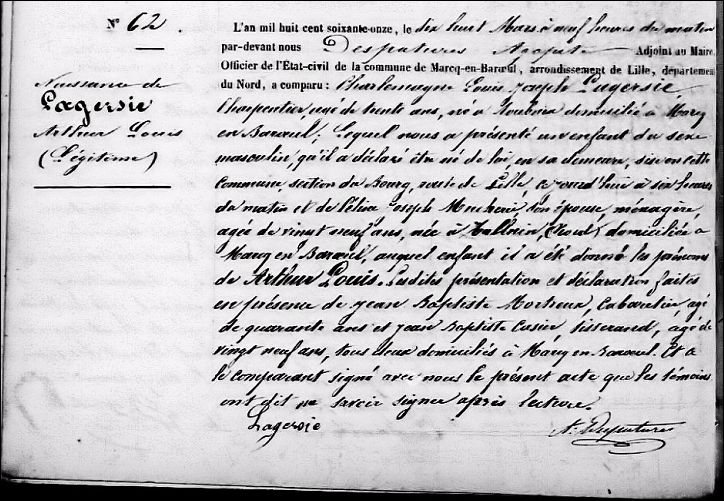 N° 62.
Naissance de
Lagersie
Arthur Louis
(Légitime)
L'an mil huit cent soixante-onze, le dix huit Mars à neuf heures du matin
par-devant nous Desputures Auguste Adjoint au Maire
Officier de l'État-civil de la commune de Marcq-en-Barœul, arrondissement de Lille, département
du Nord, a comparu : Charlemagne Louis Joseph Lagersie,
Charpentier, agé de trente ans, né à domicilié à Marcq
en Barœul; Lequel nous a présenté un enfant du sexe
masculin, qu'il a déclaré être né de lui, en sa demeure, sise en cette
Commune, section du Bourg, route de Lille, ce jourd'hui à six heures
du matin et de Joseph son épouse, ménagère,
agée de vingt neuf ans, née à Halluin, (Nord) domiciliée à
Marcq en Barœul, auquel enfant il a été donné les prénoms
de Arthur Louis. Lesdites présentation et déclaration faites
en présence de Jean Baptiste Mortreux, Cabaretier, agé
de quarante ans et Jean Baptiste Casier tisserand, agé de
vingt neuf ans, tous deux domiciliés à Marcq en Barœul. Et a
le comparant signé avec nous le présent acte que les témoins
ont dit ne savoir signer après lecture.
Lagersie
A. Desputures